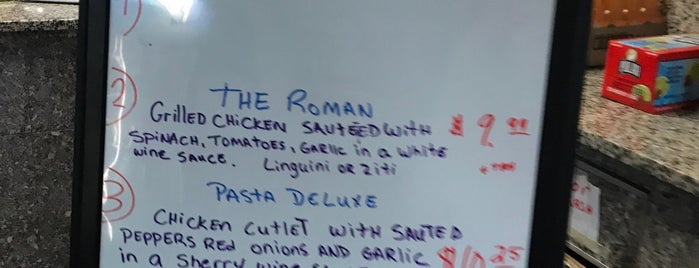 1)
2) THE ROMAN
GRILLED CHICKEN SAUTEED WITH $ 9 99
SPINACH, TOMATOES, GARLIC in a white
wine SAUCE. Linguini OR Ziti + TAX
3) PASTA DELUXE
CHICKEN CUTLET WITH SAUTED
PEPPERS RED ONIONS AND GARLIC
in a Sherry wine